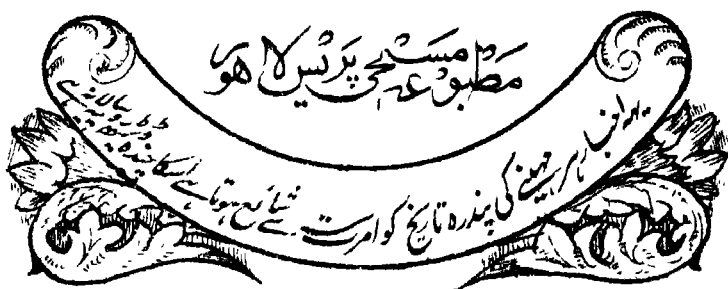 مطبوعہ مسیحی پریس لاہور
یہ اخبار ہر مہینے کی پندرہ تاریخ کو امرت سے شائع ہوتا ہے اسکا چندہ ڈیڑھ روپیہ سالانہ ہے